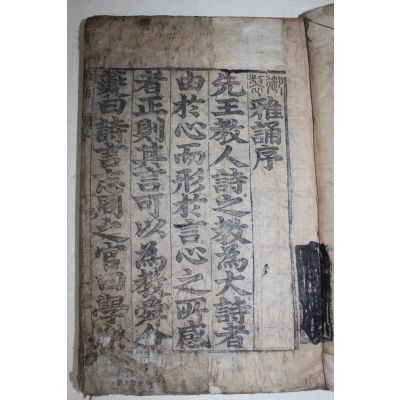 御製雅誦序
先王教人詩之教為大詩者
由於心而形於言心之所感
者正則其言可以為教舜命
夔曰詩言志周之官曰學